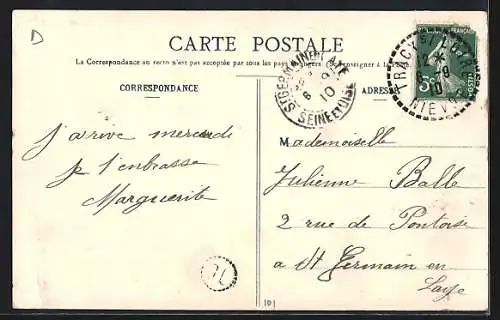 D
CARTE POSTALE
La Correspondance au recto n'est pas acceptée par tous les pays étrangers (Se renseigner à la
CORRESPONDANCE
ADRESSE
ST GERMAIN EN LAYE
8 10
SEINE ET OISE
TRACY S/ LOIRE
NIÈVRE
5c
j'arrive mercredi
je t'embrasse
Marguerite
Mademoiselle
Julienne Balle
2 rue de Pontoise
a St Germain en
Laye
101